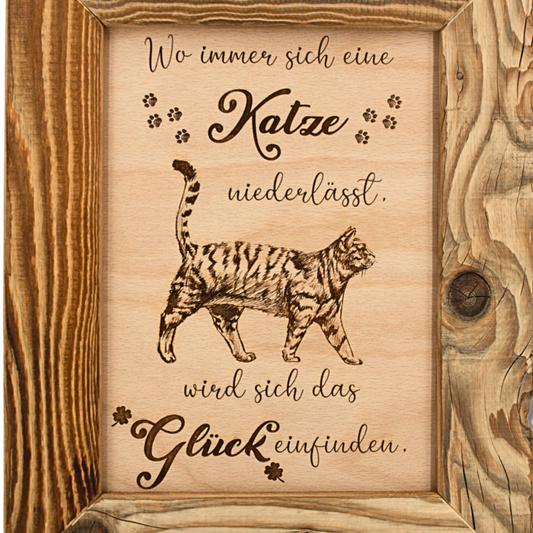 Wo immer sich eine
Katze
niederlässt,
wird sich das
Glück einfinden.